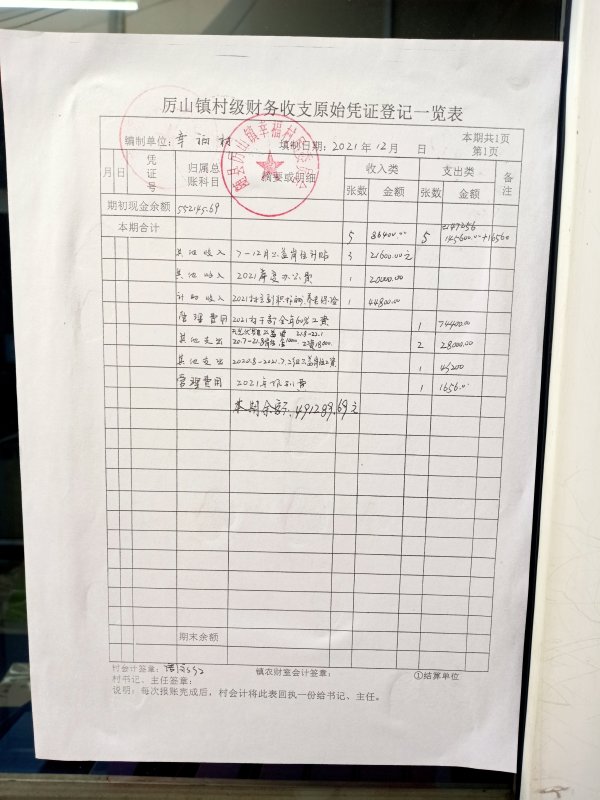 厉山镇村级财务收支原始凭证登记一览表
编制单位：幸福村 填制日期：2021年12月 日 本期共1页 第1页
月 日 凭证号 归属总账科目 摘要或明细 收入类 张数 金额 支出类 张数 金额 备注
期初现金余额 552145.69
本期合计 5 86400.00 5 147256 145600.00+1656.0
其他收入 7-12月公益岗位补贴 3 21600.00元
其他收入 2021年度办公费 1 20000.00
其他收入 2021村主副职补助、养老保险 1 44800.00
管理费用 2021村干部全年60%工资 1 74400.00
其他支出 2 28000.00
其他支出 2020.8-2021.7 公益岗位工资 1 45200
管理费用 2021年报刊费 1 1656.0
本期余额：491289.69元
期末余额
村会计签章： 镇农财室会计签章： ①结算单位
村书记、主任签章：
说明：每次报账完成后，村会计将此表回执一份给书记、主任。